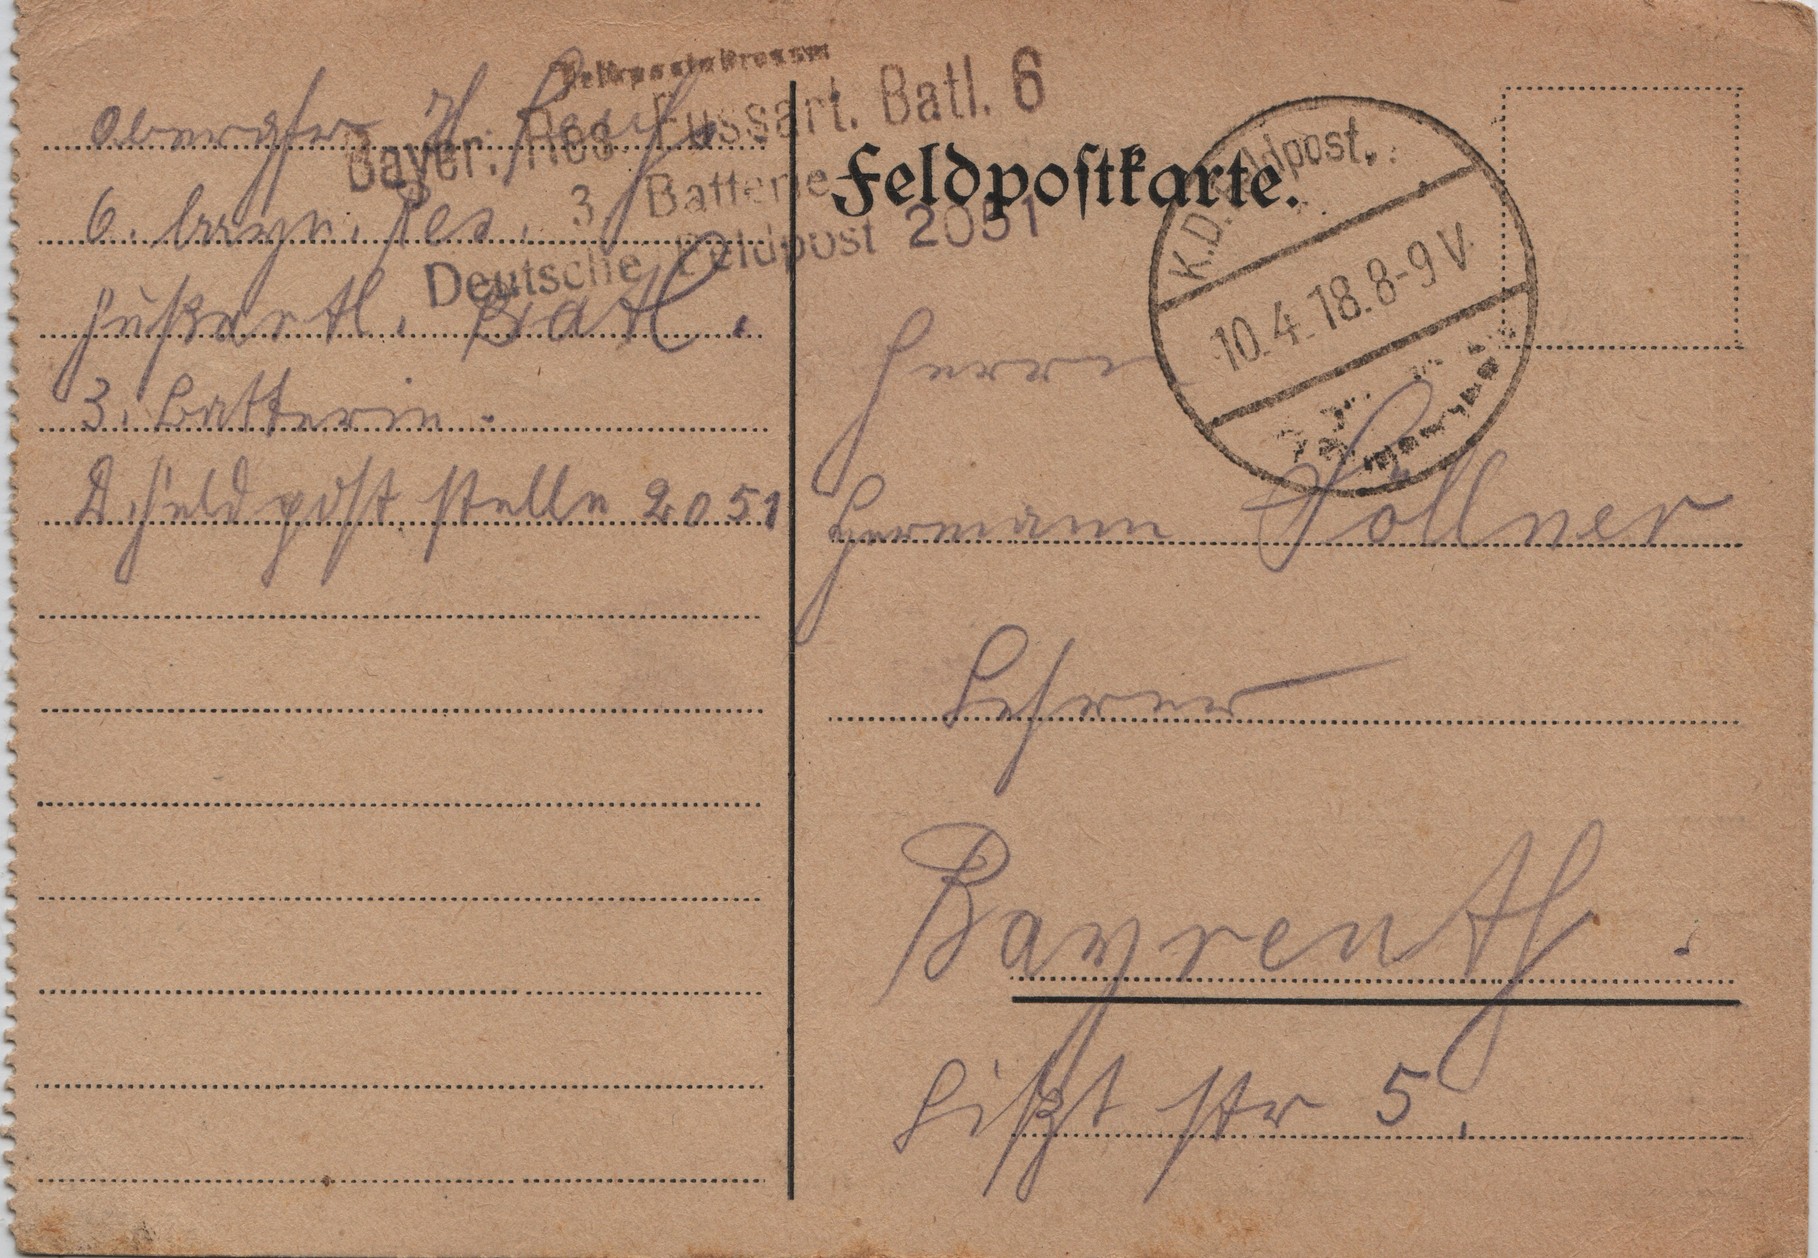 Feldpostadresse
Bayer. Res. Fussart. Batl. 6
3. Batterie
Deutsche Feldpost 2051
Obergfr. H.
6. bayr. Res.
Fußartl. Batl.
3. Batterie.
D. Feldpoststelle 2051
Feldpostkarte.
K.D. Feldpost.
10.4.18.8-9V
Herrn
Hermann Föllner
Lehrer
Bayreuth.
Lißtstr 5.